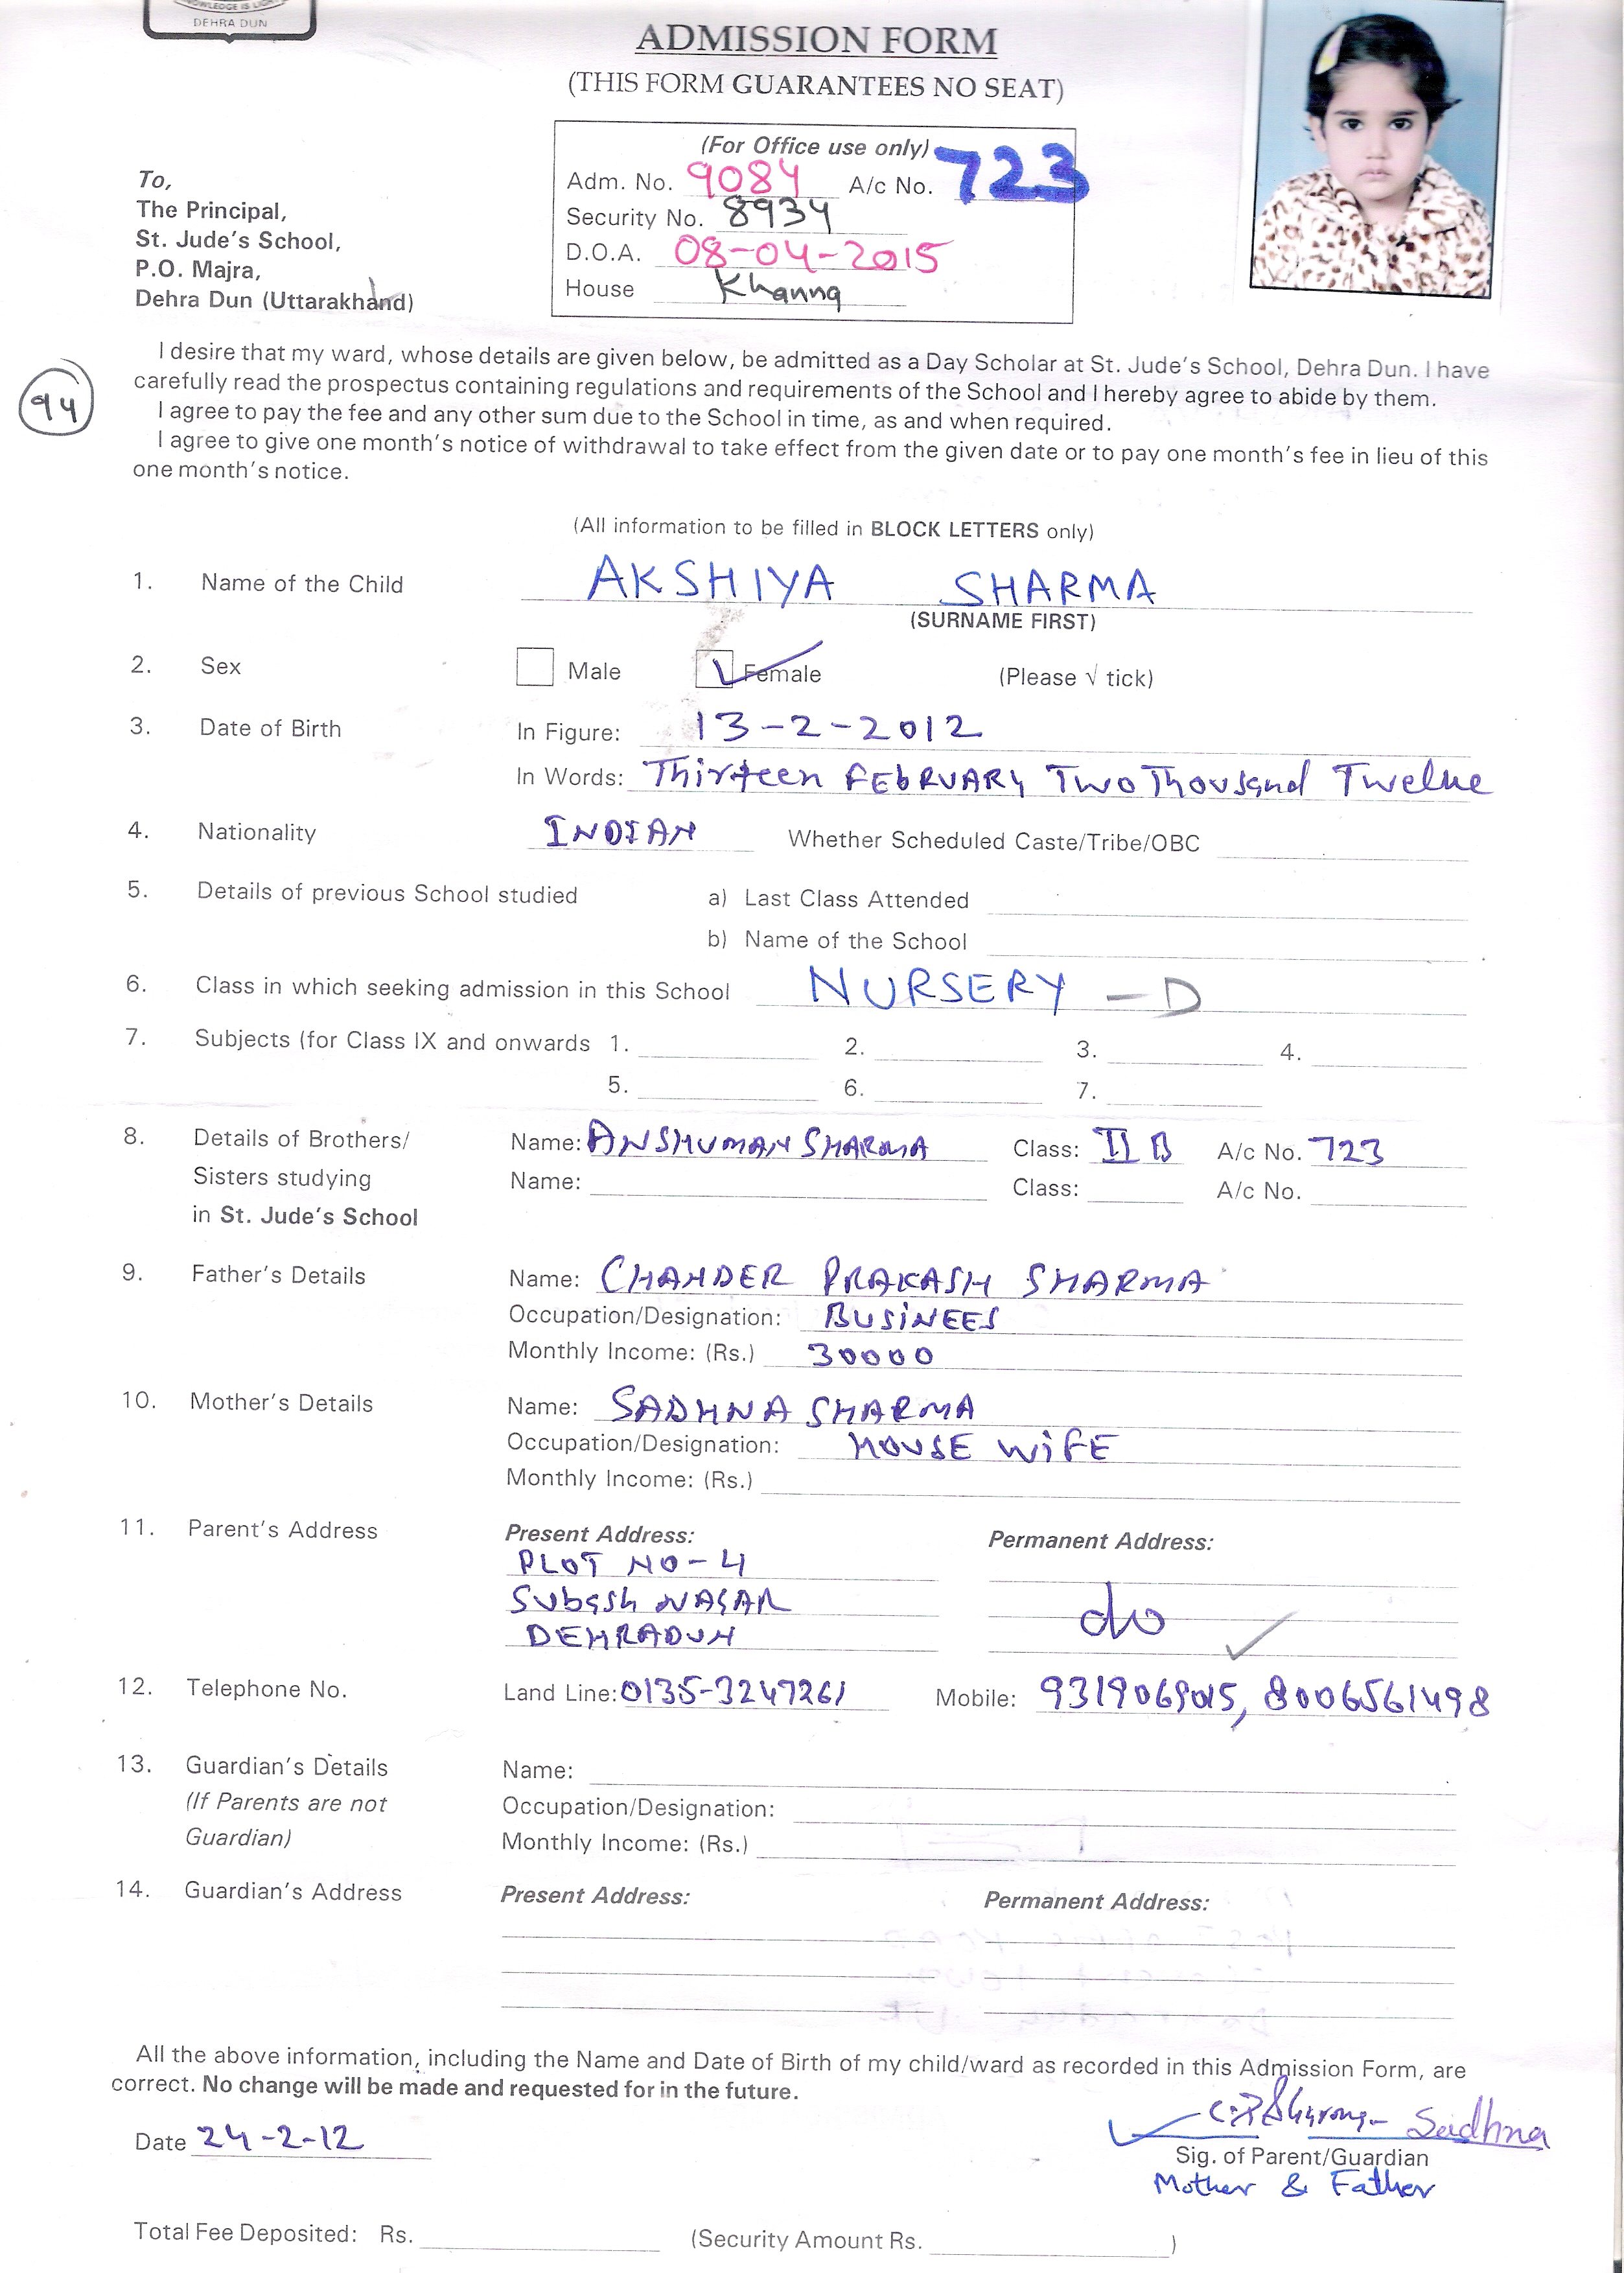 KNOWLEDGE IS LIGHT
DEHRA DUN
ADMISSION FORM
(THIS FORM GUARANTEES NO SEAT)
(For Office use only)
Adm. No. 9084 A/c No. 723
Security No. 8934
D.O.A. 08-04-2015
House Khanna
To,
The Principal,
St. Jude's School,
P.O. Majra,
Dehra Dun (Uttarakhand)
94
I desire that my ward, whose details are given below, be admitted as a Day Scholar at St. Jude's School, Dehra Dun. I have
carefully read the prospectus containing regulations and requirements of the School and I hereby agree to abide by them.
I agree to pay the fee and any other sum due to the School in time, as and when required.
I agree to give one month's notice of withdrawal to take effect from the given date or to pay one month's fee in lieu of this
one month's notice.
(All information to be filled in BLOCK LETTERS only)
1. Name of the Child AKSHIYA SHARMA
(SURNAME FIRST)
2. Sex Male Female (Please √ tick)
3. Date of Birth In Figure: 13-2-2012
In Words: Thirteen FEbRUARY Two Thousand Twelve
4. Nationality INDIAN Whether Scheduled Caste/Tribe/OBC
5. Details of previous School studied a) Last Class Attended
b) Name of the School
6. Class in which seeking admission in this School NURSERY - D
7. Subjects (for Class IX and onwards 1. 2. 3. 4.
5. 6. 7.
8. Details of Brothers/ Name: ANSHUMAN SHARMA Class: II B A/c No. 723
Sisters studying Name: Class: A/c No.
in St. Jude's School
9. Father's Details Name: CHANDER PRAKASH SHARMA
Occupation/Designation: BUSINEES
Monthly Income: (Rs.) 30000
10. Mother's Details Name: SADHNA SHARMA
Occupation/Designation: HOUSE WiFE
Monthly Income: (Rs.)
11. Parent's Address Present Address: Permanent Address:
PLOT NO-4
Subash NAGAR do
DEHRADUN
12. Telephone No. Land Line: 0135-3247261 Mobile: 9319069015, 8006561498
13. Guardian's Details Name:
(If Parents are not Occupation/Designation:
Guardian) Monthly Income: (Rs.)
14. Guardian's Address Present Address: Permanent Address:
All the above information, including the Name and Date of Birth of my child/ward as recorded in this Admission Form, are
correct. No change will be made and requested for in the future.
C.P. Sharma Sadhna
Date 24-2-12
Sig. of Parent/Guardian
Mother & Father
Total Fee Deposited: Rs. (Security Amount Rs. )